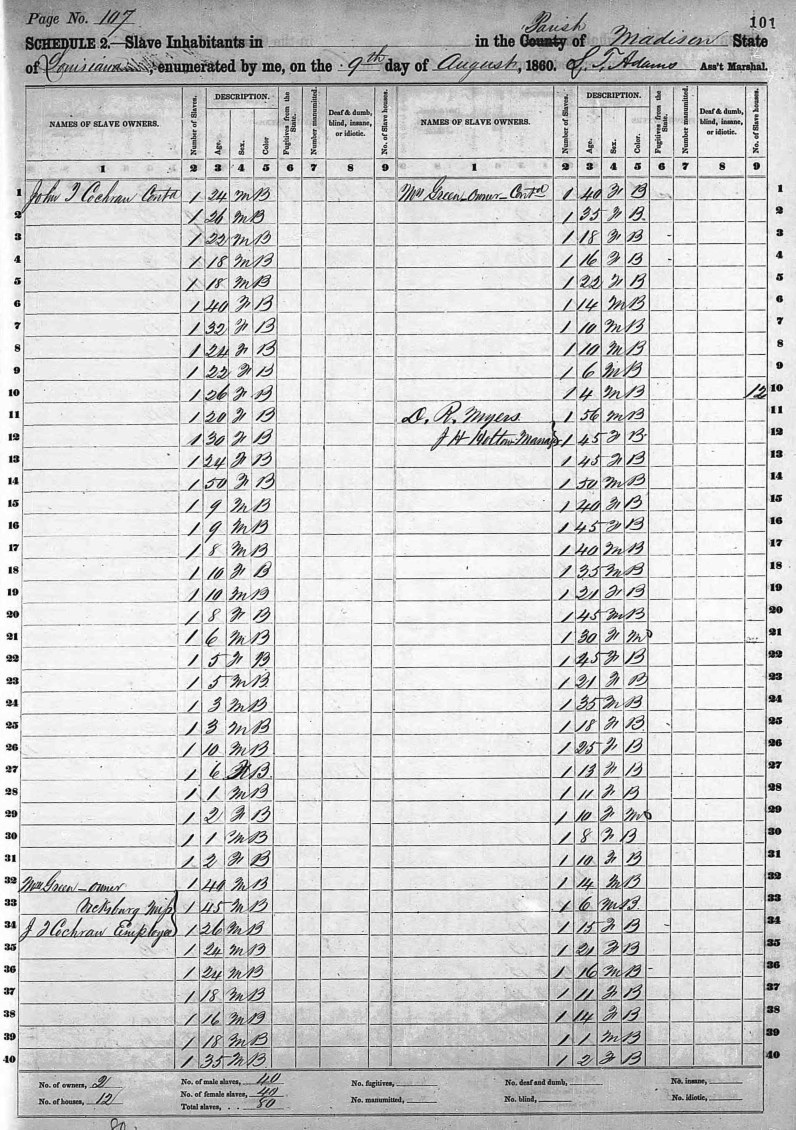 Page No. 107
101
SCHEDULE 2.—Slave Inhabitants in in the County Parish of Madison State
of Louisiana, enumerated by me, on the 9th day of August, 1860. S. T. Adams Ass't Marshal.
NAMES OF SLAVE OWNERS. Number of Slaves. DESCRIPTION. Age. Sex. Color Fugitives from the State. Number manumitted. Deaf & dumb, blind, insane, or idiotic. No. of Slave houses. NAMES OF SLAVE OWNERS. Number of Slaves. DESCRIPTION. Age. Sex. Color. Fugitives from the State. Number manumitted. Deaf & dumb, blind, insane, or idiotic. No. of Slave houses.
1 2 3 4 5 6 7 8 9 1 2 3 4 5 6 7 8 9
1 John T Cochran Contd 1 24 M B Wm Green–owner–Contd 1 40 F B 1
2 1 26 M B 1 35 F B 2
3 1 22 M B 1 18 F B 3
4 1 18 M B 1 16 F B 4
5 1 18 M B 1 22 F B 5
6 1 40 F B 1 14 M B 6
7 1 32 F B 1 10 M B 7
8 1 24 F B 1 10 M B 8
9 1 22 F B 1 6 M B 9
10 1 26 F B 1 4 M B 12 10
11 1 20 F B D. R. Myers 1 56 M B 11
12 1 30 F B J H Manager 1 45 F B 12
13 1 24 F B 1 45 F B 13
14 1 50 F B 1 50 M B 14
15 1 9 M B 1 40 F B 15
16 1 9 M B 1 45 F B 16
17 1 8 M B 1 40 M B 17
18 1 10 F B 1 35 M B 18
19 1 10 M B 1 21 F B 19
20 1 8 F B 1 45 M B 20
21 1 6 M B 1 30 F M 21
22 1 5 F B 1 45 F B 22
23 1 5 M B 1 21 F B 23
24 1 3 M B 1 35 M B 24
25 1 3 M B 1 18 F B 25
26 1 10 M B 1 25 F B 26
27 1 6 F B 1 13 F B 27
28 1 1 M B 1 11 F B 28
29 1 2 F B 1 10 F M 29
30 1 1 M B 1 8 F B 30
31 1 2 F B 1 10 F B 31
32 Wm Green–owner 1 40 M B 1 14 M B 32
33 Vicksburg Miss 1 45 M B 1 6 M B 33
34 J T Cochran Employer 1 26 M B 1 15 F B 34
35 1 24 M B 1 21 F B 35
36 1 24 M B 1 16 M B 36
37 1 18 M B 1 11 F B 37
38 1 16 M B 1 14 F B 38
39 1 18 M B 1 1 M B 39
40 1 35 M B 1 2 F B 40
No. of owners, 2 No. of male slaves, 40 No. fugitives, No. deaf and dumb, No. insane,
No. of houses, 12 No. of female slaves, 40 No. manumitted, No. blind, No. idiotic,
Total slaves, 80
80